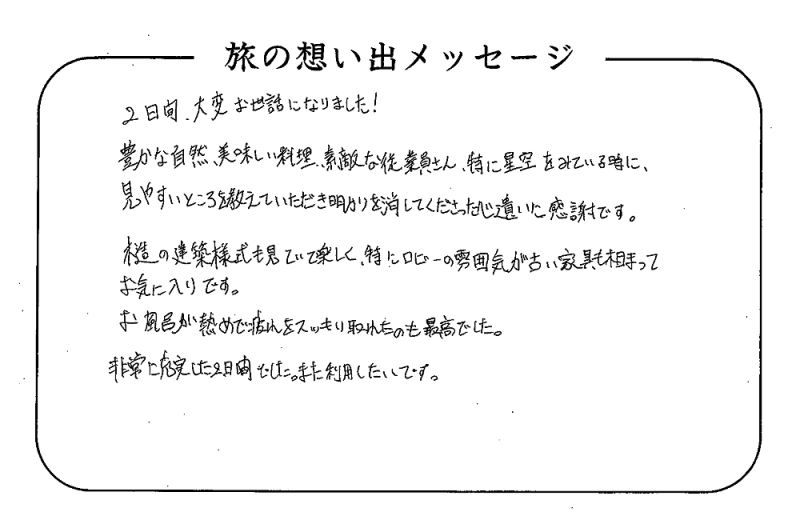 旅の想い出メッセージ
2日間、大変お世話になりました!
豊かな自然、美味しい料理、素敵な従業員さん、特に星空をみている時に、
見やすいところを教えていただき明かりを消してくださった心遣いに感謝です。
木造の建築様式も見ていて楽しく、特にロビーの雰囲気が古い家具も相まって
お気に入りです。
お風呂が熱めで疲れをスッキリ取れたのも最高でした。
非常に充実した2日間でした。また利用したいです。